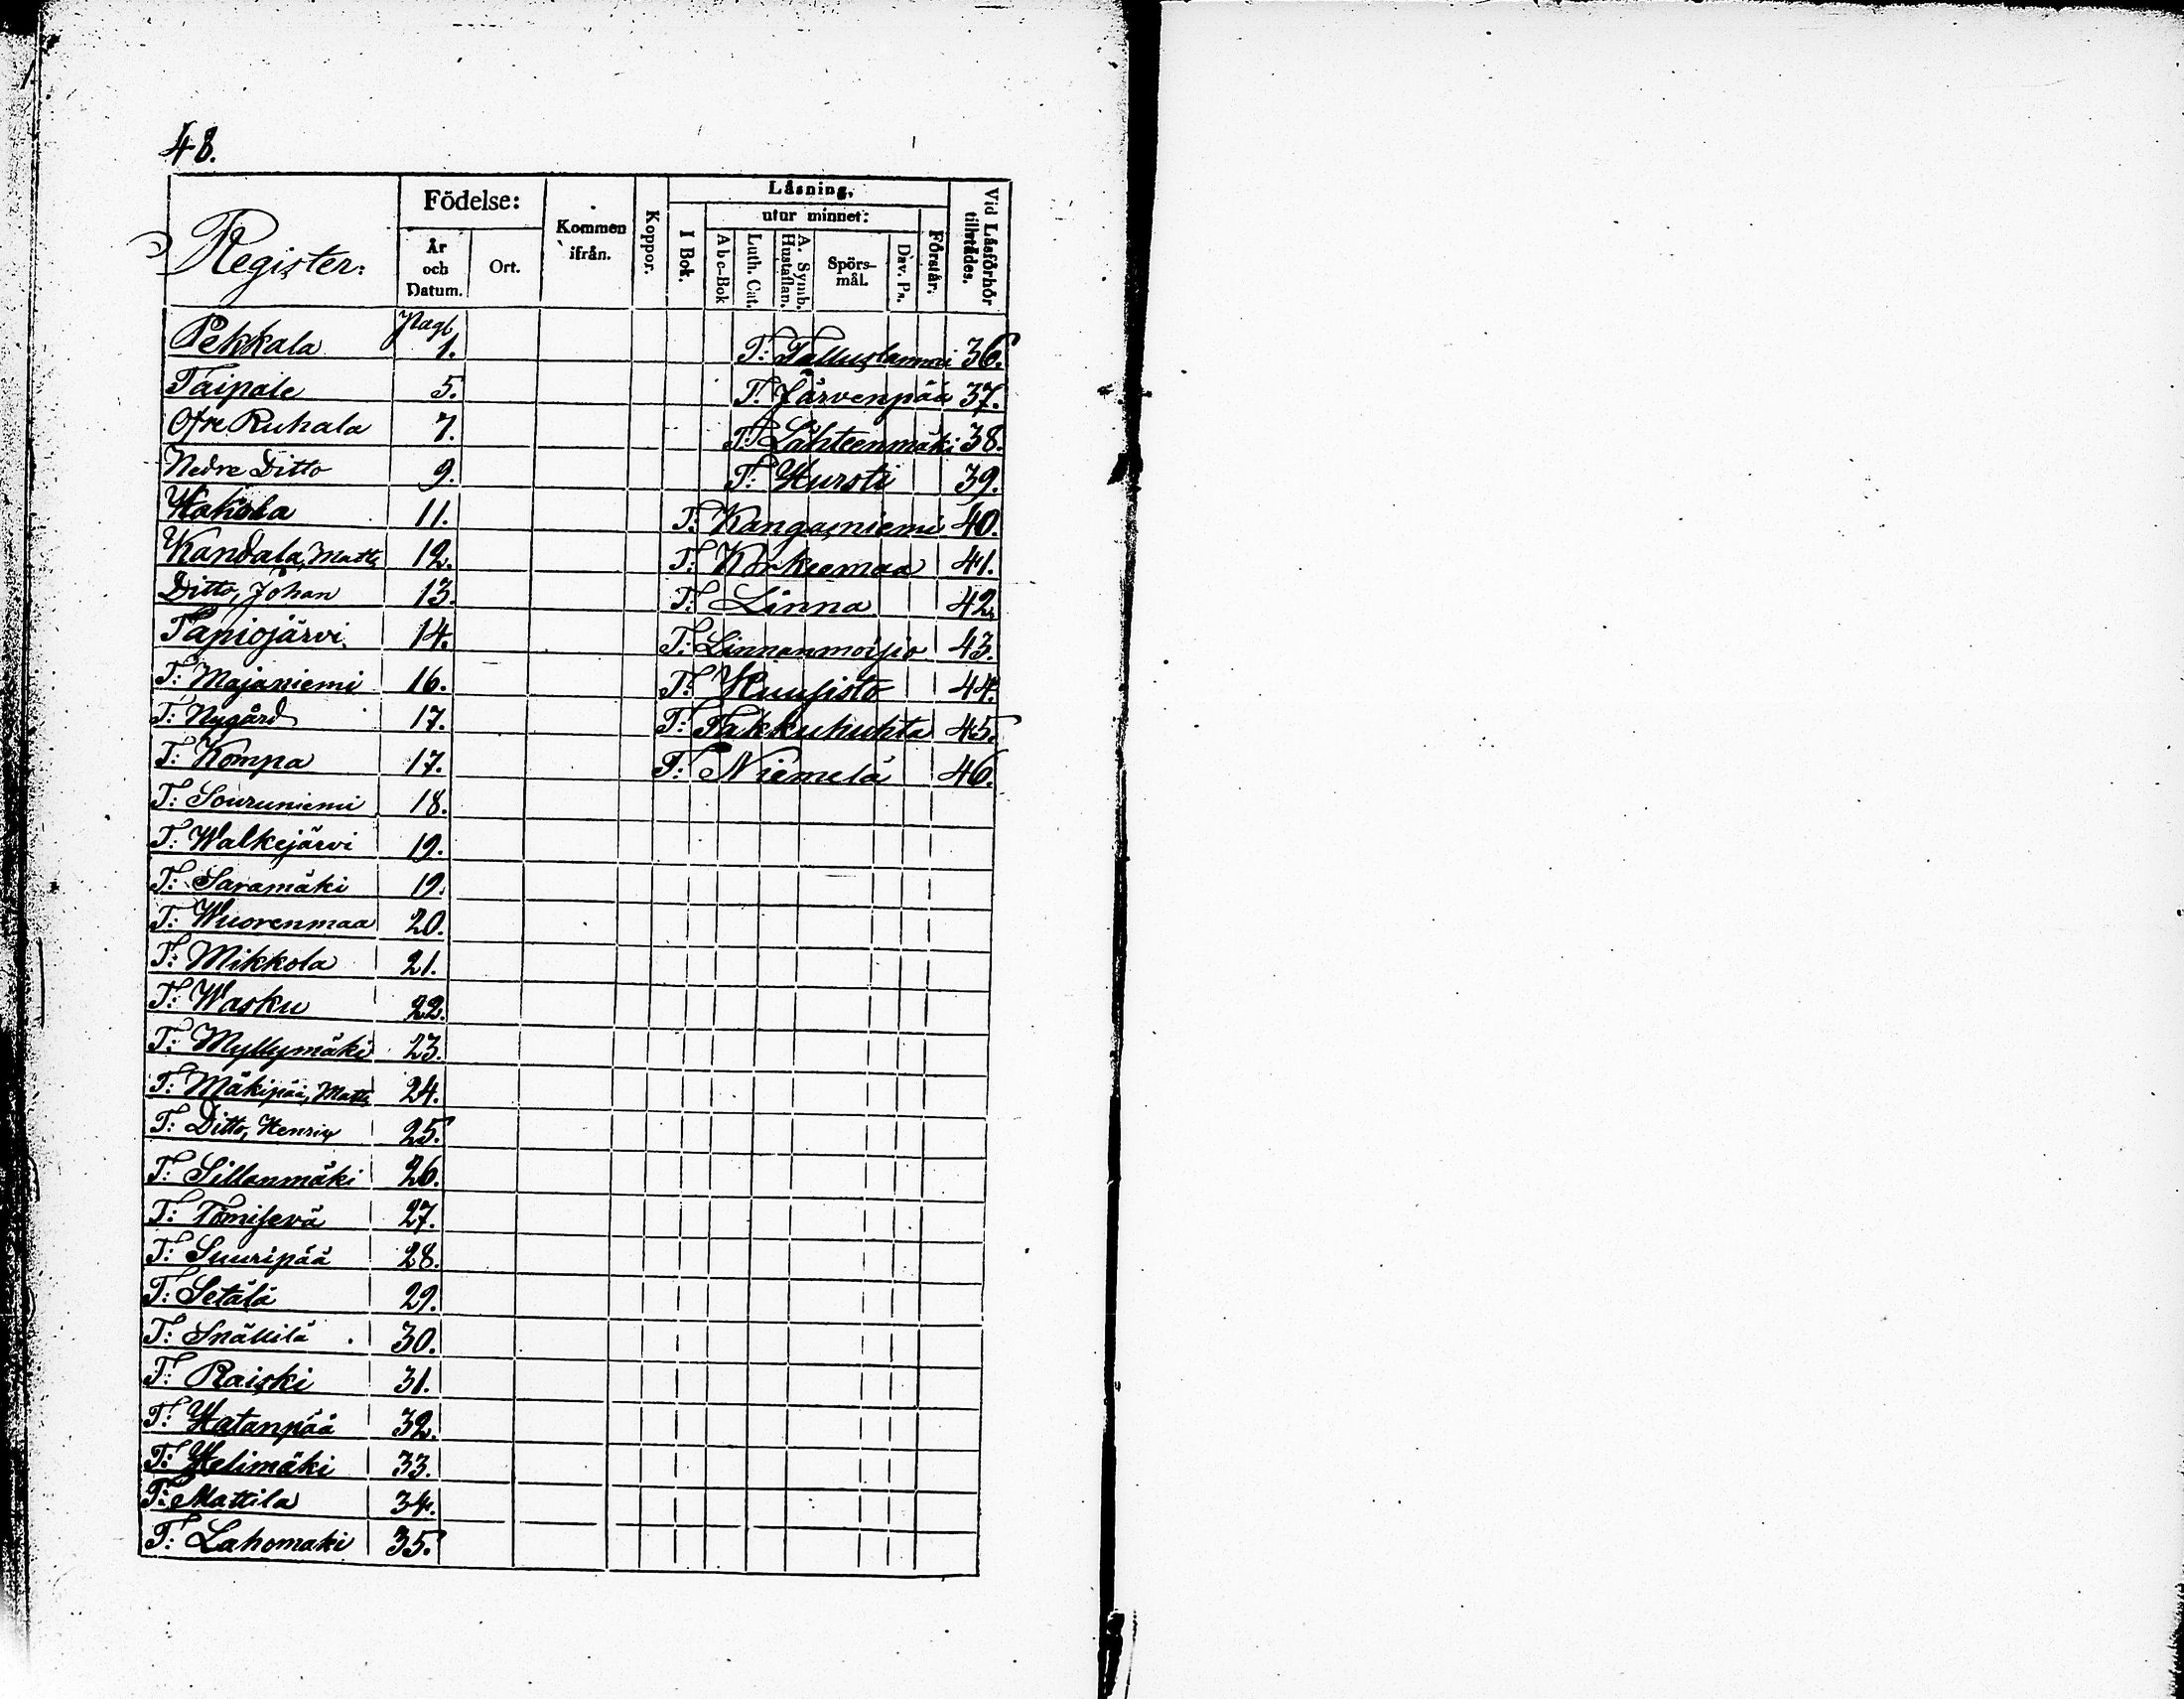 48.
Register:
Födelse:
År och Datum.
Ort.
Kommen ifrån.
Koppor.
Läsning,
utur minnet:
I Bok.
Abc-Bok
Luth. Cat.
A. Symb. Hustaflan.
Spörsmål.
Dav. Ps.
Förstår.
Vid Läsförhör tillstädes.
Pekkala Pag. 1. T: Talluslammi 36.
Taipale 5. T: Järvenpää 37.
Öfre Ruhala 7. T: Lähteenmäki 38.
Nedre Ditto 9. T: Hursti 39.
Hakola 11. T: Kangasniemi 40.
Kandala, Matts 12. T: Korkeemaa 41.
Ditto, Johan 13. T: Linna 42.
Tapiojärvi 14. T: Linnanmoisio 43.
T: Majaniemi 16. T: Kuusisto 44.
T: Nygård 17. T: Takkuhuhta 45.
T: Kompa 17. T: Niemelä 46.
T: Souruniemi 18.
T: Walkejärvi 19.
T: Saramäki 19.
T: Wuorenmaa 20.
T: Mikkola 21.
T: Wasku 22.
T: Myllymäki 23.
T: Mäkipää, Matts 24.
T: Ditto, Henrik 25.
T: Sillanmäki 26.
T: Tömisevä 27.
T: Suuripää 28.
T: Setälä 29.
T: Snällilä 30.
T: Raiski 31.
T: Hatanpää 32.
T: Helimäki 33.
T: Mattila 34.
T: Lahomaki 35.